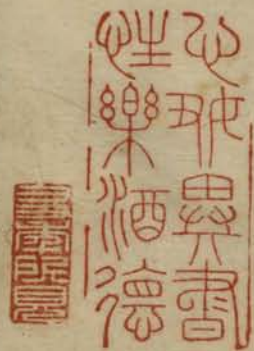 心耽異書
性樂酒德